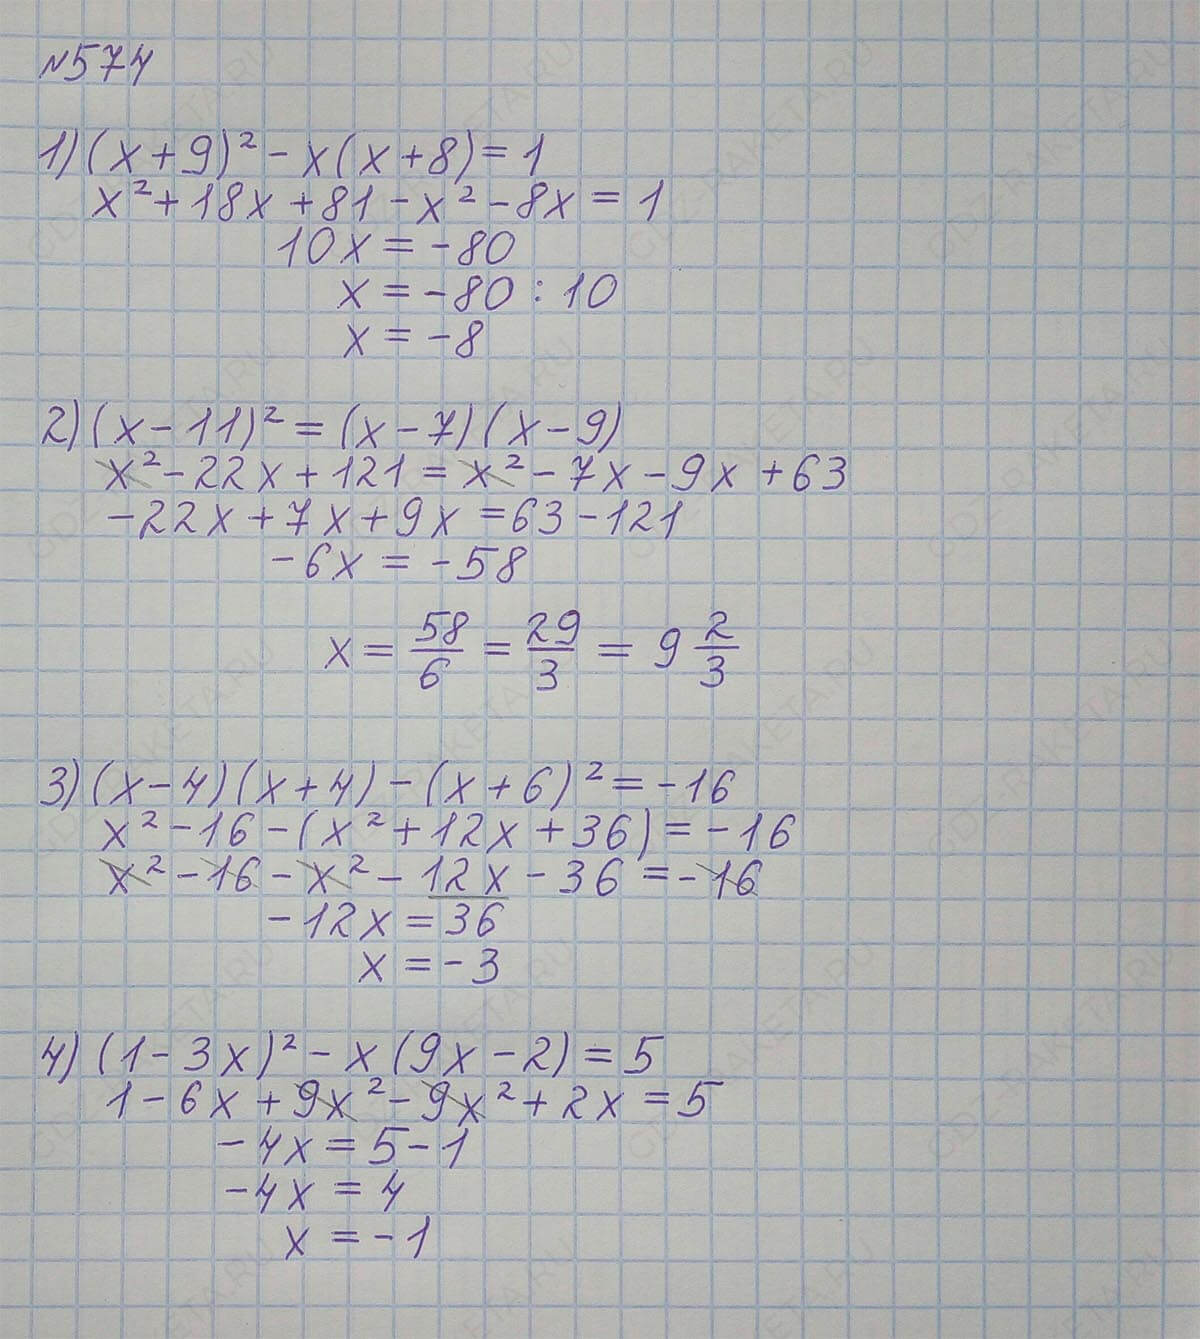 №574
1) (x+9)² - x(x+8) = 1
x² + 18x + 81 - x² - 8x = 1
10x = -80
x = -80 : 10
x = -8
2) (x-11)² = (x-7)(x-9)
x² - 22x + 121 = x² - 7x - 9x + 63
-22x + 7x + 9x = 63 - 121
-6x = -58
x = 58/6 = 29/3 = 9 2/3
3) (x-4)(x+4) - (x+6)² = -16
x² - 16 - (x² + 12x + 36) = -16
x² - 16 - x² - 12x - 36 = -16
-12x = 36
x = -3
4) (1-3x)² - x(9x-2) = 5
1 - 6x + 9x² - 9x² + 2x = 5
-4x = 5 - 1
-4x = 4
x = -1
GDZ-RAKETA.RU